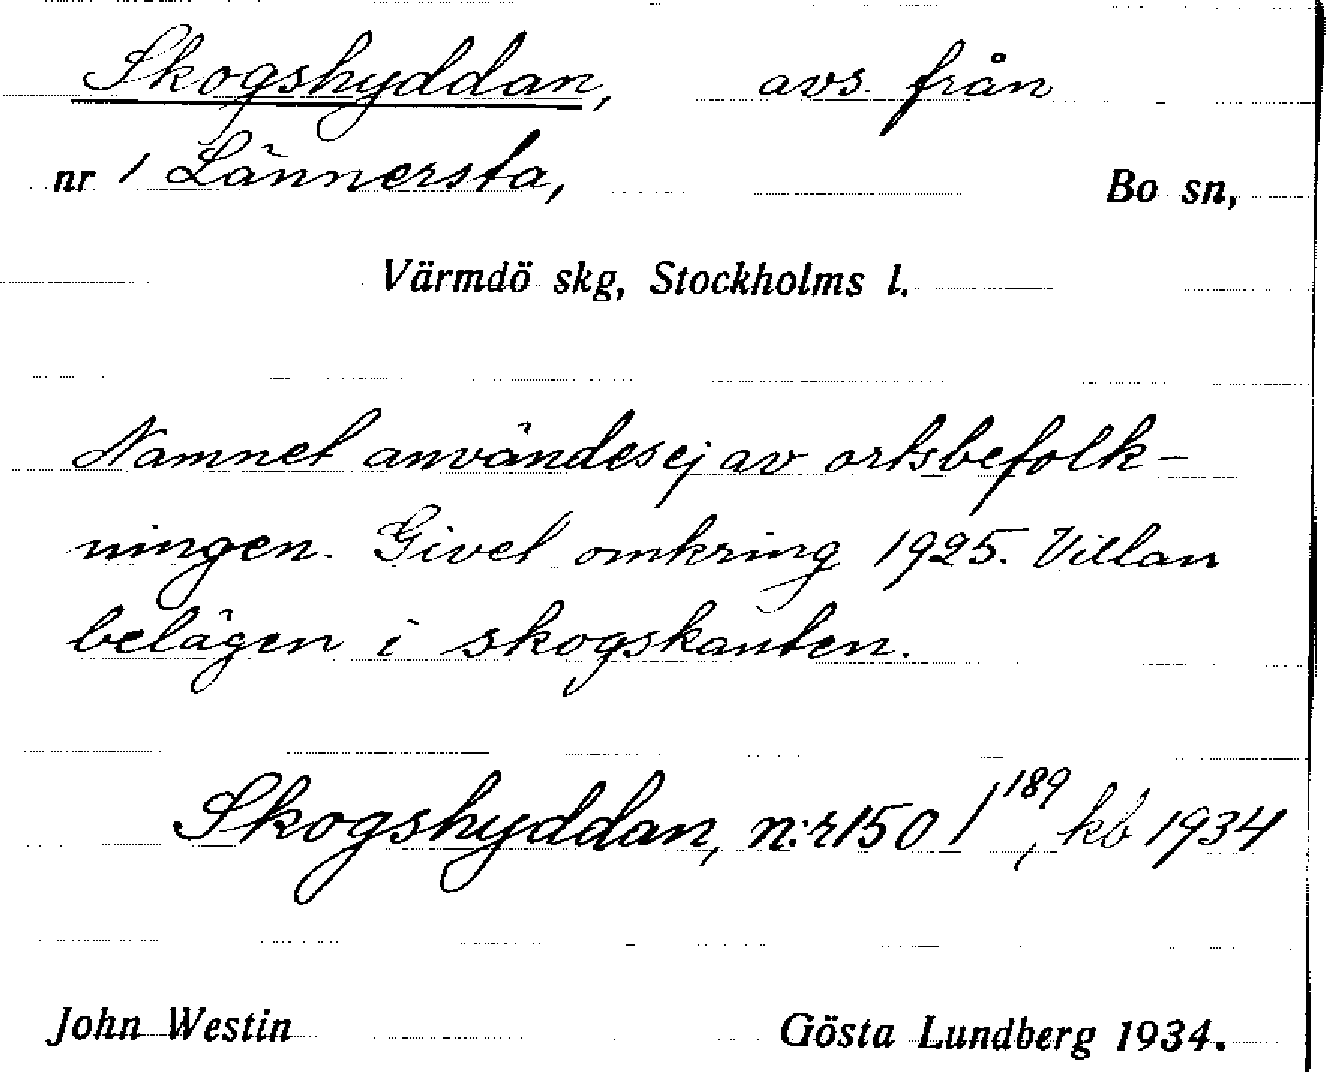 Skogshyddan, avs. från
nr 1 Lännersta, Bo sn,
Värmdö skg, Stockholms l.
Namnet användes ej av ortsbefolk-
ningen. Givet omkring 1925. Villan
belägen i skogskanten.
Skogshyddan, n:r 150 1 189, kb 1934
John Westin Gösta Lundberg 1934.